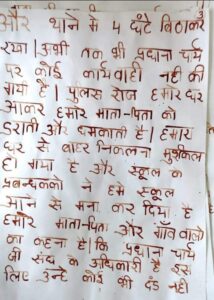 और थाने में 4 घंटे बिठाकर
रखा। अभी तक भी प्रधाना चार्य
पर कोई कार्यवाही नही की
गयी है। पुलस रोज हमारे घर
आकर हमारे माता-पिता को
डराती और धमकाती है। हमारा
घर से बाहर निकलना मुश्किल
हो गया है और स्कूल के
प्रबन्धकों ने हमे स्कूल
आने से मना कर दिया है
हमारे माता-पिता और गांव वालो
का कहना है। कि प्रधान चार्य
जी संघ के अधिकारी है इस
लिए उन्हे कोई भी दंड नही